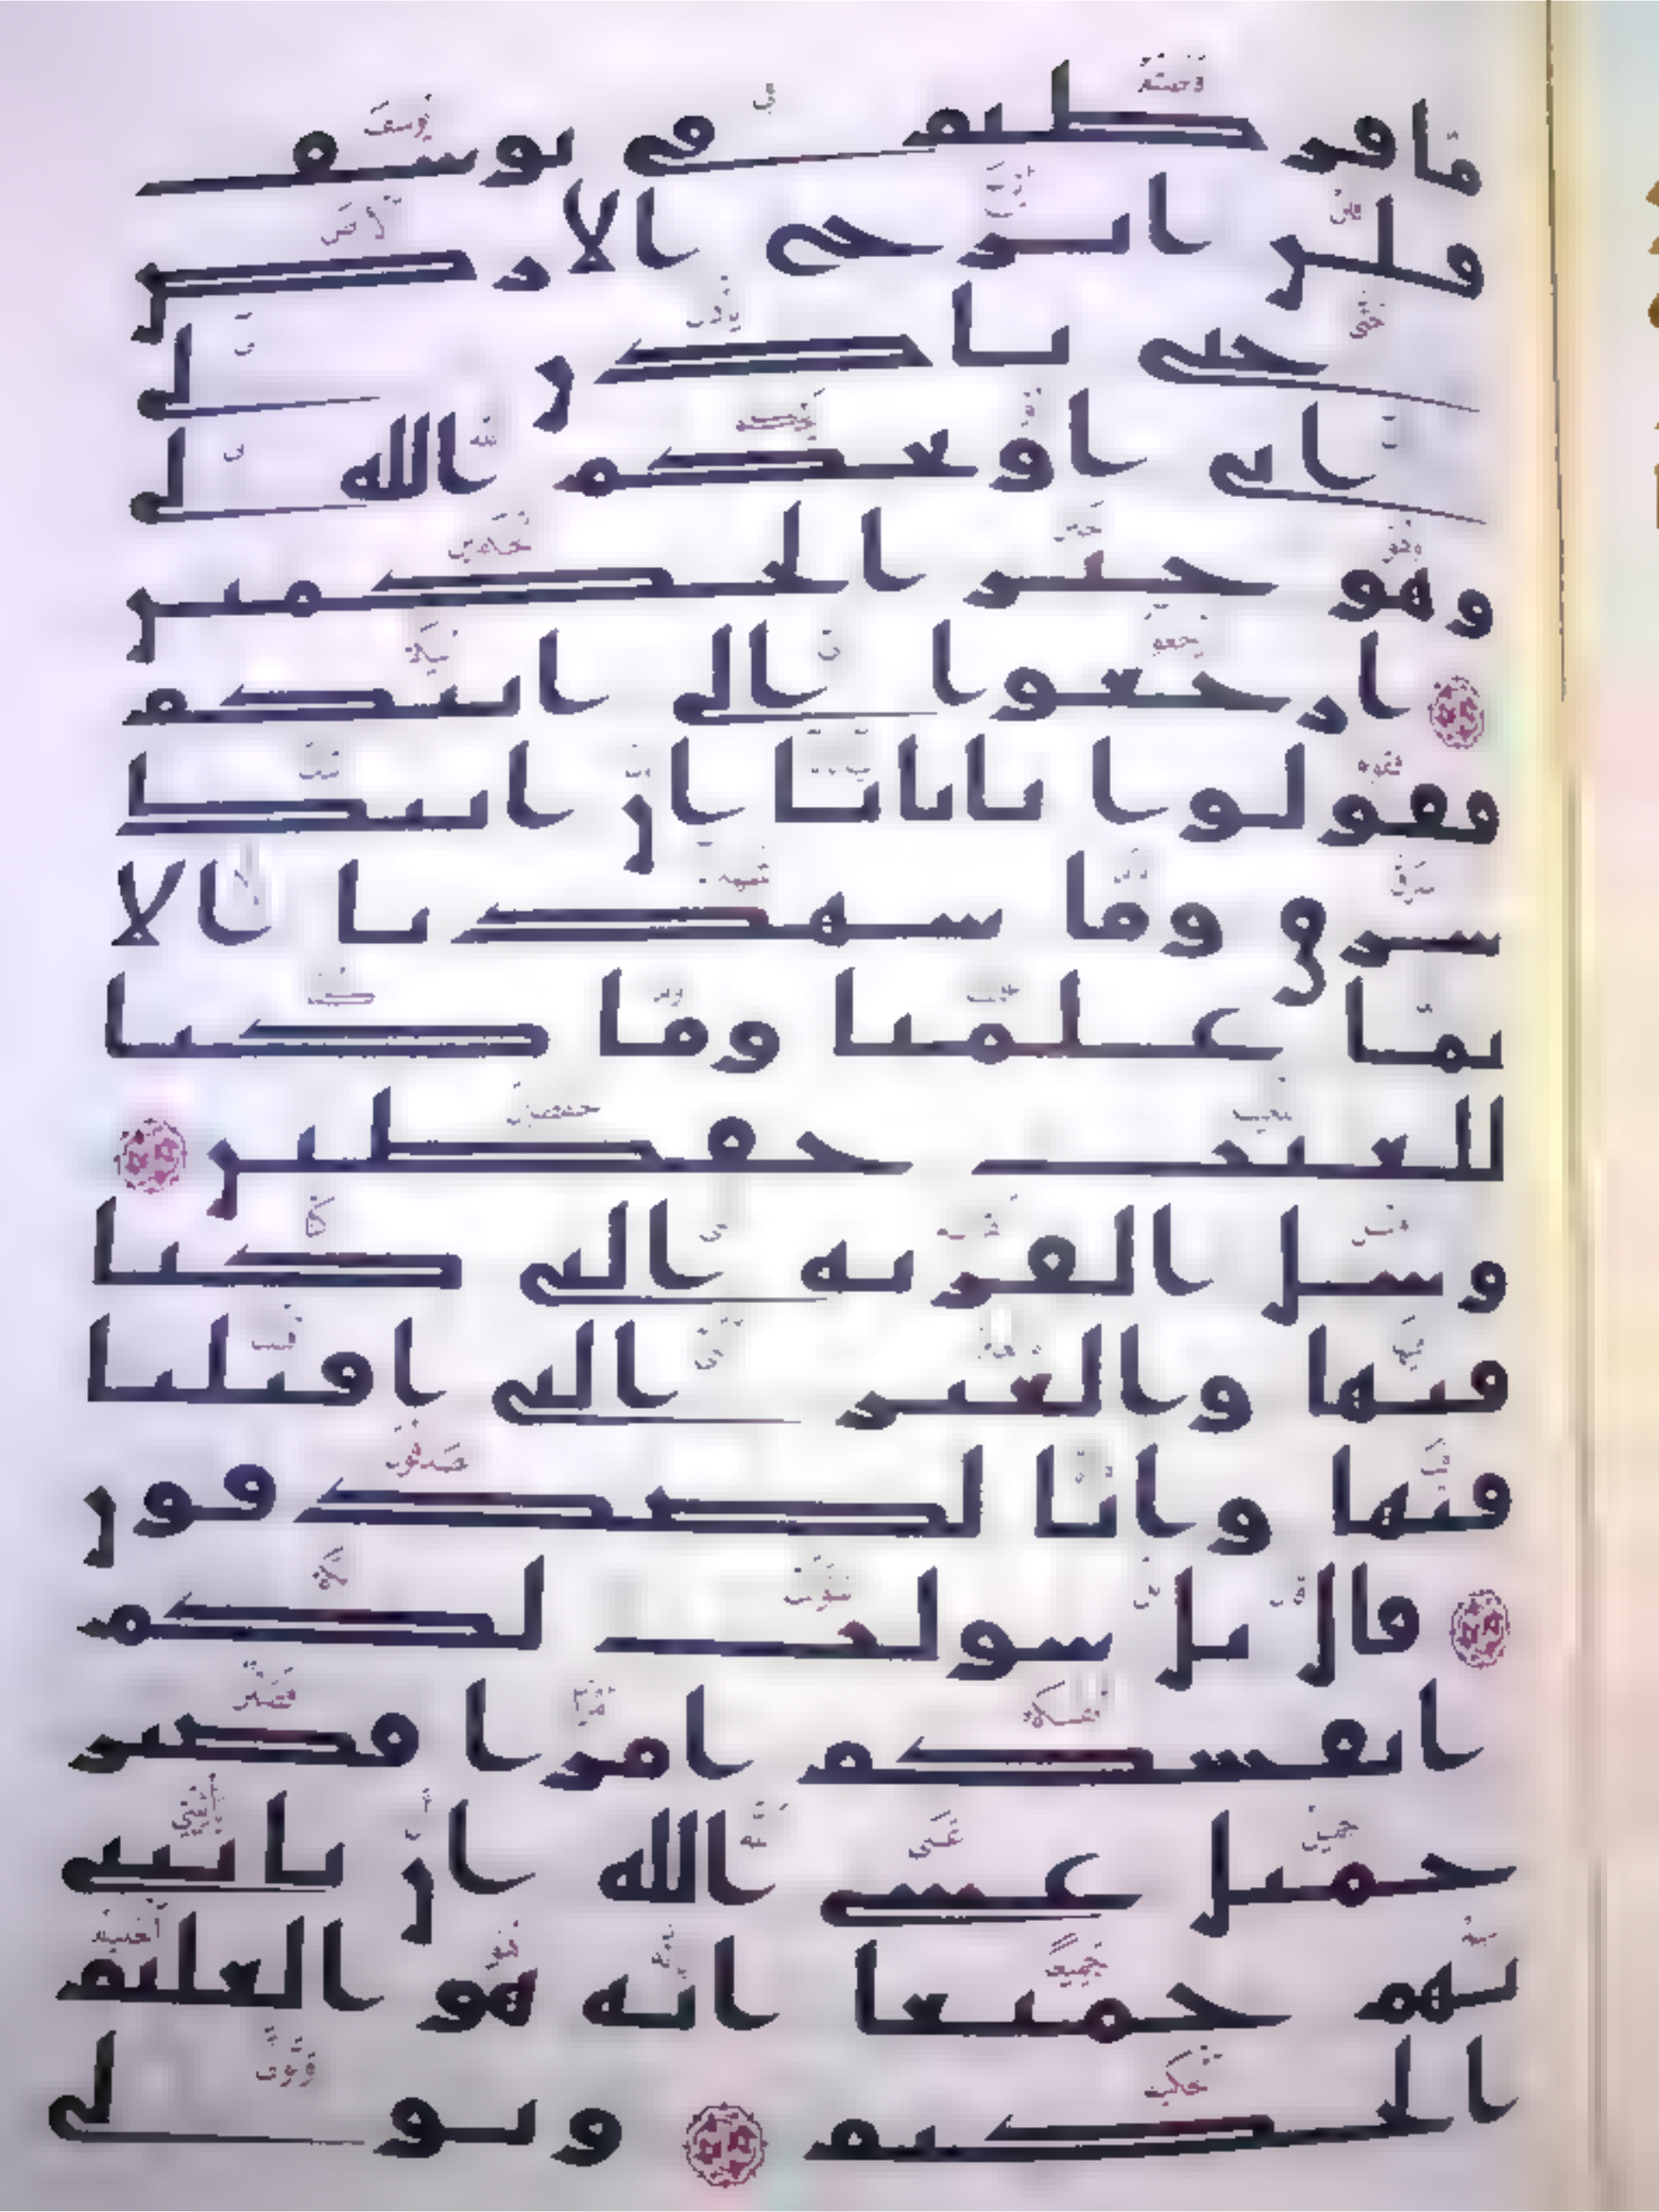 ما فرطتم في يوسف
فلن ابرح الارض
حتى ياذن لي
ابي او يحكم الله لي
وهو خير الحكمين
ارجعوا الى ابيكم
فقولوا يابانا ان ابنك
سرق وما شهدنا الا
بما علمنا وما كنا
للغيب حفظين
وسل القرية التي كنا
فيها والعير التي اقبلنا
فيها وانا لصدقون
قال بل سولت لكم
انفسكم امرا فصبر
جميل عسى الله ان ياتيني
بهم جميعا انه هو العليم
الحكيم وتولى